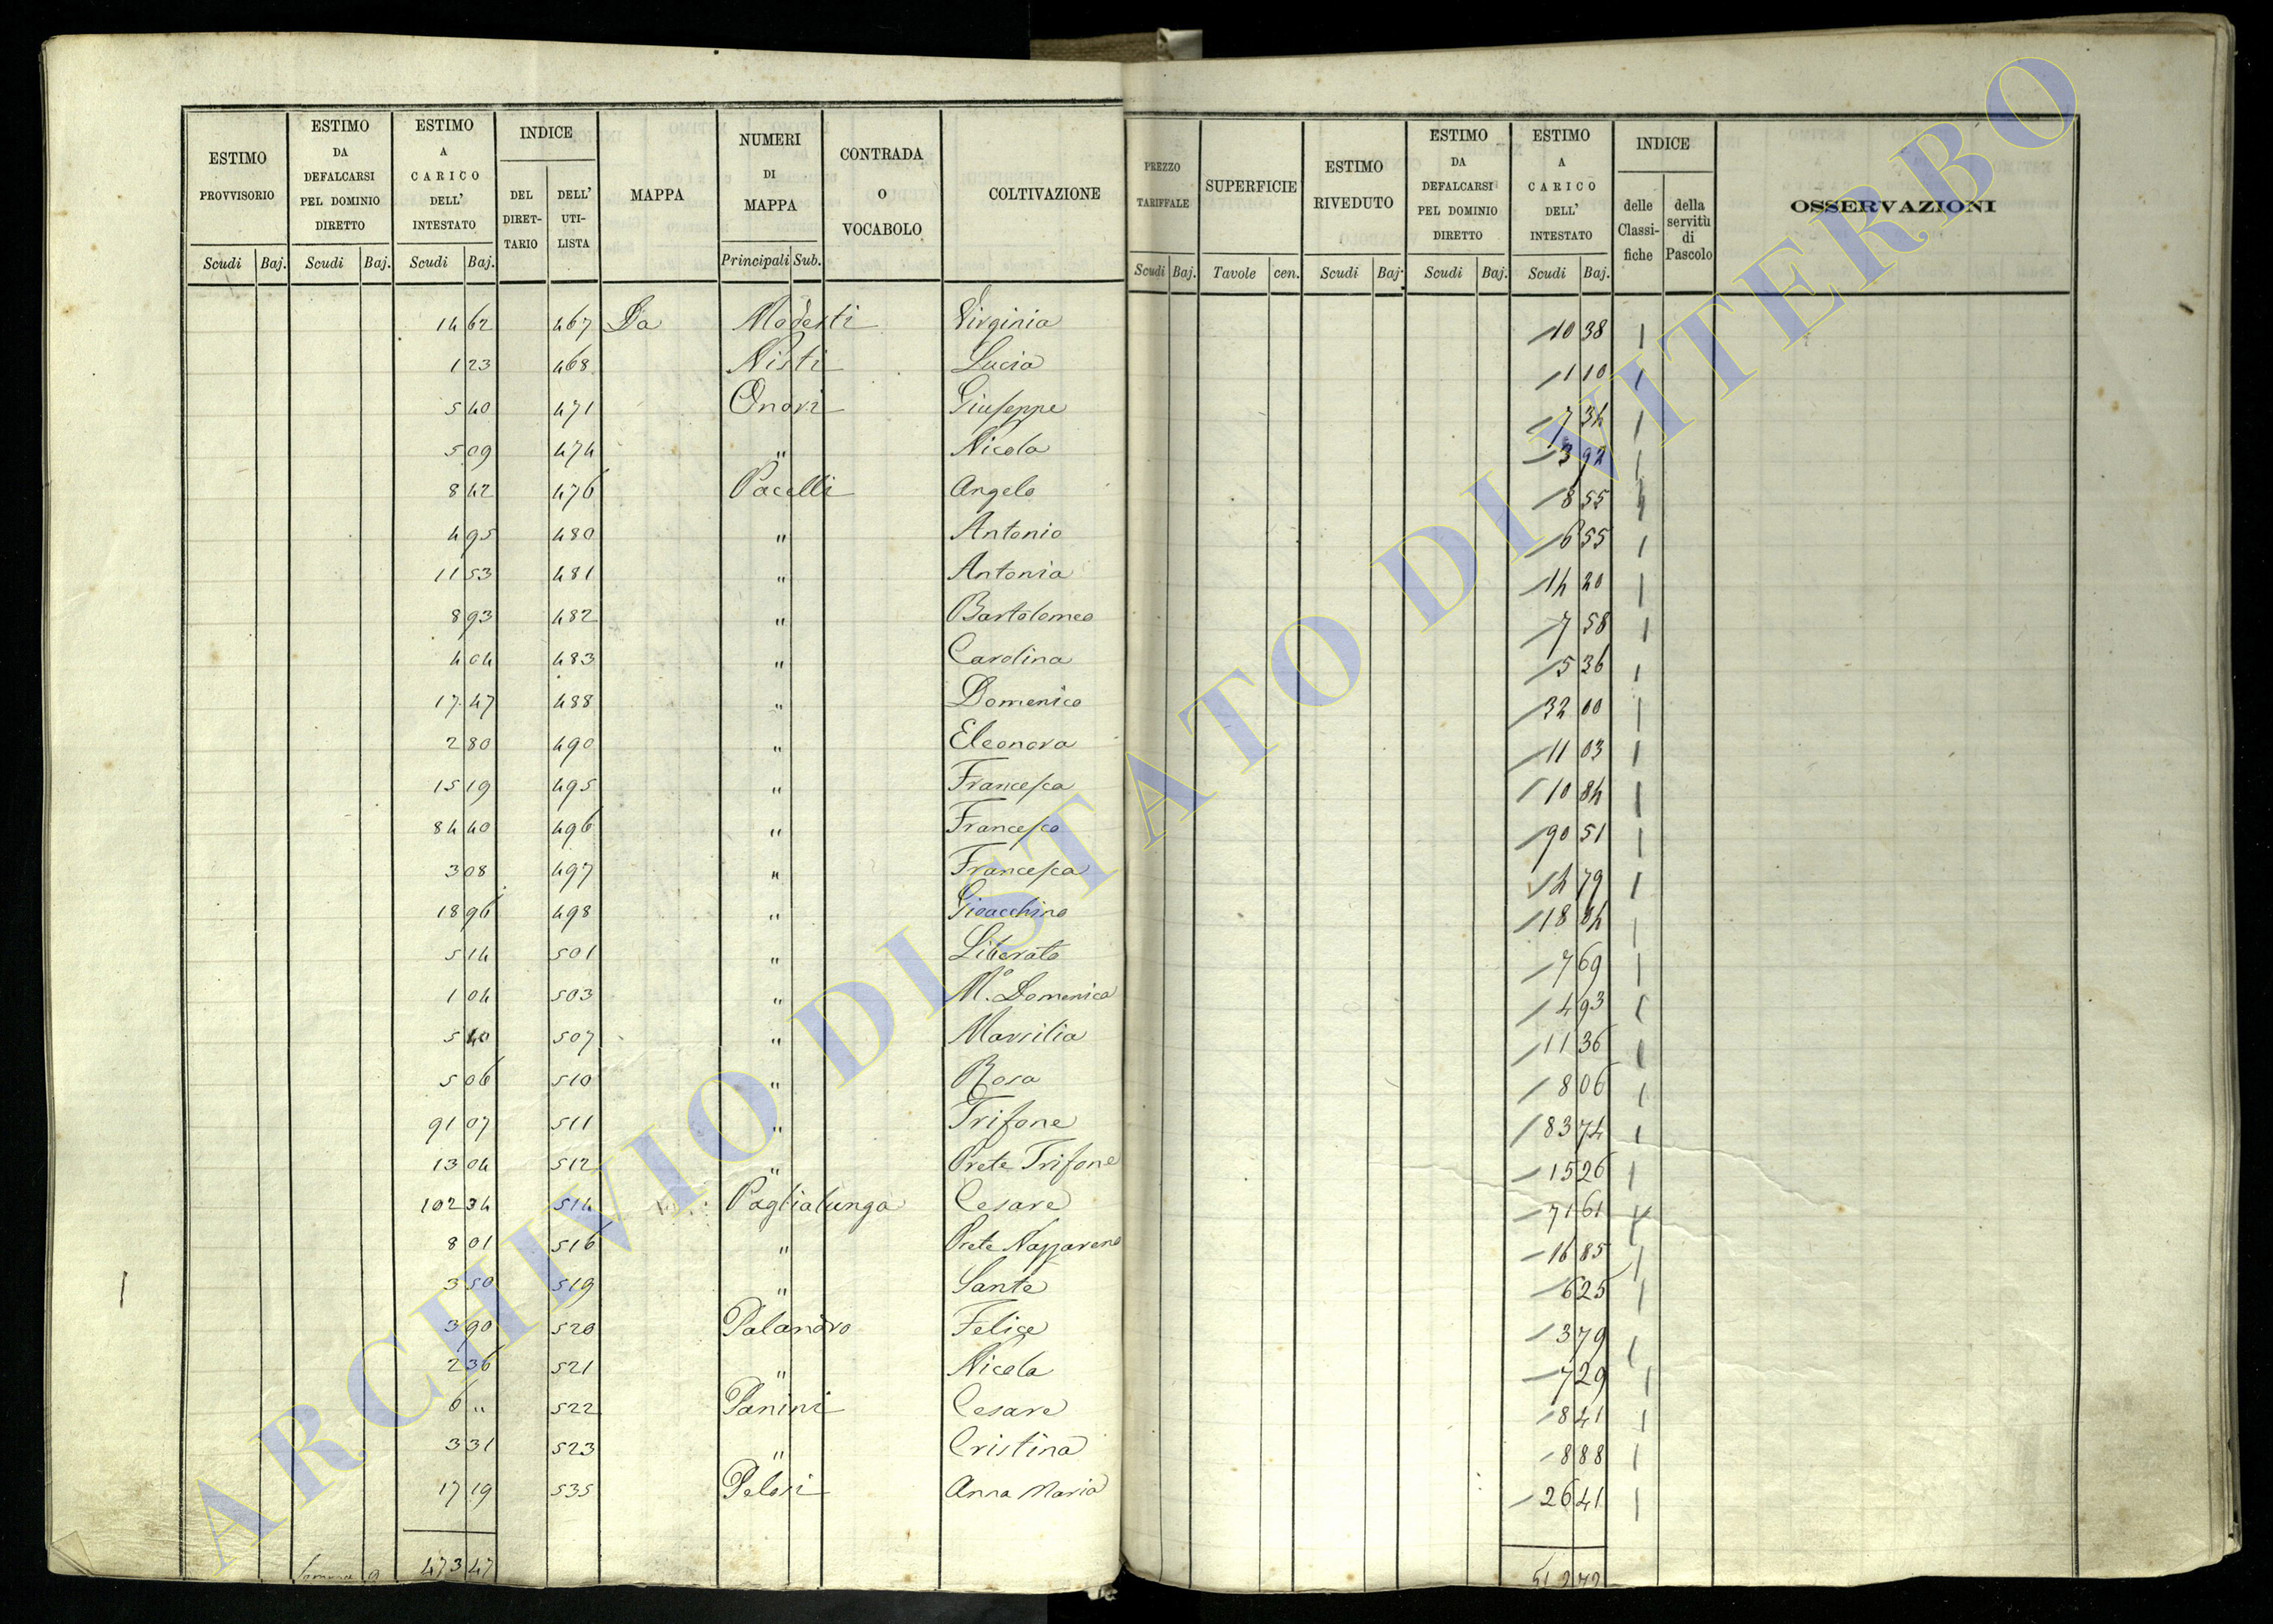 ESTIMO PROVVISORIO
ESTIMO DA DEFALCARSI PEL DOMINIO DIRETTO
ESTIMO A CARICO DELL' INTESTATO
INDICE
DEL DIRET-TARIO
DELL' UTI-LISTA
MAPPA
NUMERI DI MAPPA
CONTRADA O VOCABOLO
COLTIVAZIONE
PREZZO TARIFFALE
SUPERFICIE
ESTIMO RIVEDUTO
ESTIMO DA DEFALCARSI PEL DOMINIO DIRETTO
ESTIMO A CARICO DELL' INTESTATO
INDICE
delle Classi-fiche
della servitù di Pascolo
OSSERVAZIONI
Scudi Baj. Scudi Baj. Scudi Baj. Principali Sub. Scudi Baj. Tavole cen. Scudi Baj. Scudi Baj. Scudi Baj.
14 62 467 Da Modesti Virginia 10 38
1 23 468 Nisti Lucia 1 10
5 40 471 Onori Giuseppe 7 34
5 09 474 " Nicola 3 92
8 42 476 Pacelli Angelo 8 55
4 95 480 " Antonio 6 55
11 53 481 " Antonia 14 20
8 93 482 " Bartolomeo 7 58
4 04 483 " Carolina 5 36
17 47 488 " Domenico 32 00
2 80 490 " Eleonora 11 03
15 19 495 " Francesca 10 84
84 40 496 " Francesco 90 51
3 08 497 " Francesca 4 79
18 96 498 " Gioacchino 18 04
5 14 501 " Liberato 7 69
1 04 503 " Mª. Domenica 4 93
5 40 507 " Marsilia 11 36
5 06 510 " Rosa 8 06
91 07 511 " Trifone 83 74
13 04 512 " Prete Trifone 15 26
102 34 514 Paglialunga Cesare 71 61
8 01 516 " Prete Nazzareno 16 85
3 50 519 " Sante 6 25
3 90 520 Palandro Felice 3 79
2 36 521 " Nicola 7 29
6 " 522 Panini Cesare 8 41
3 31 523 " Cristina 8 88
17 19 535 Pelosi Anna Maria 26 41
473 47 512 72
ARCHIVIO DI STATO DI VITERBO